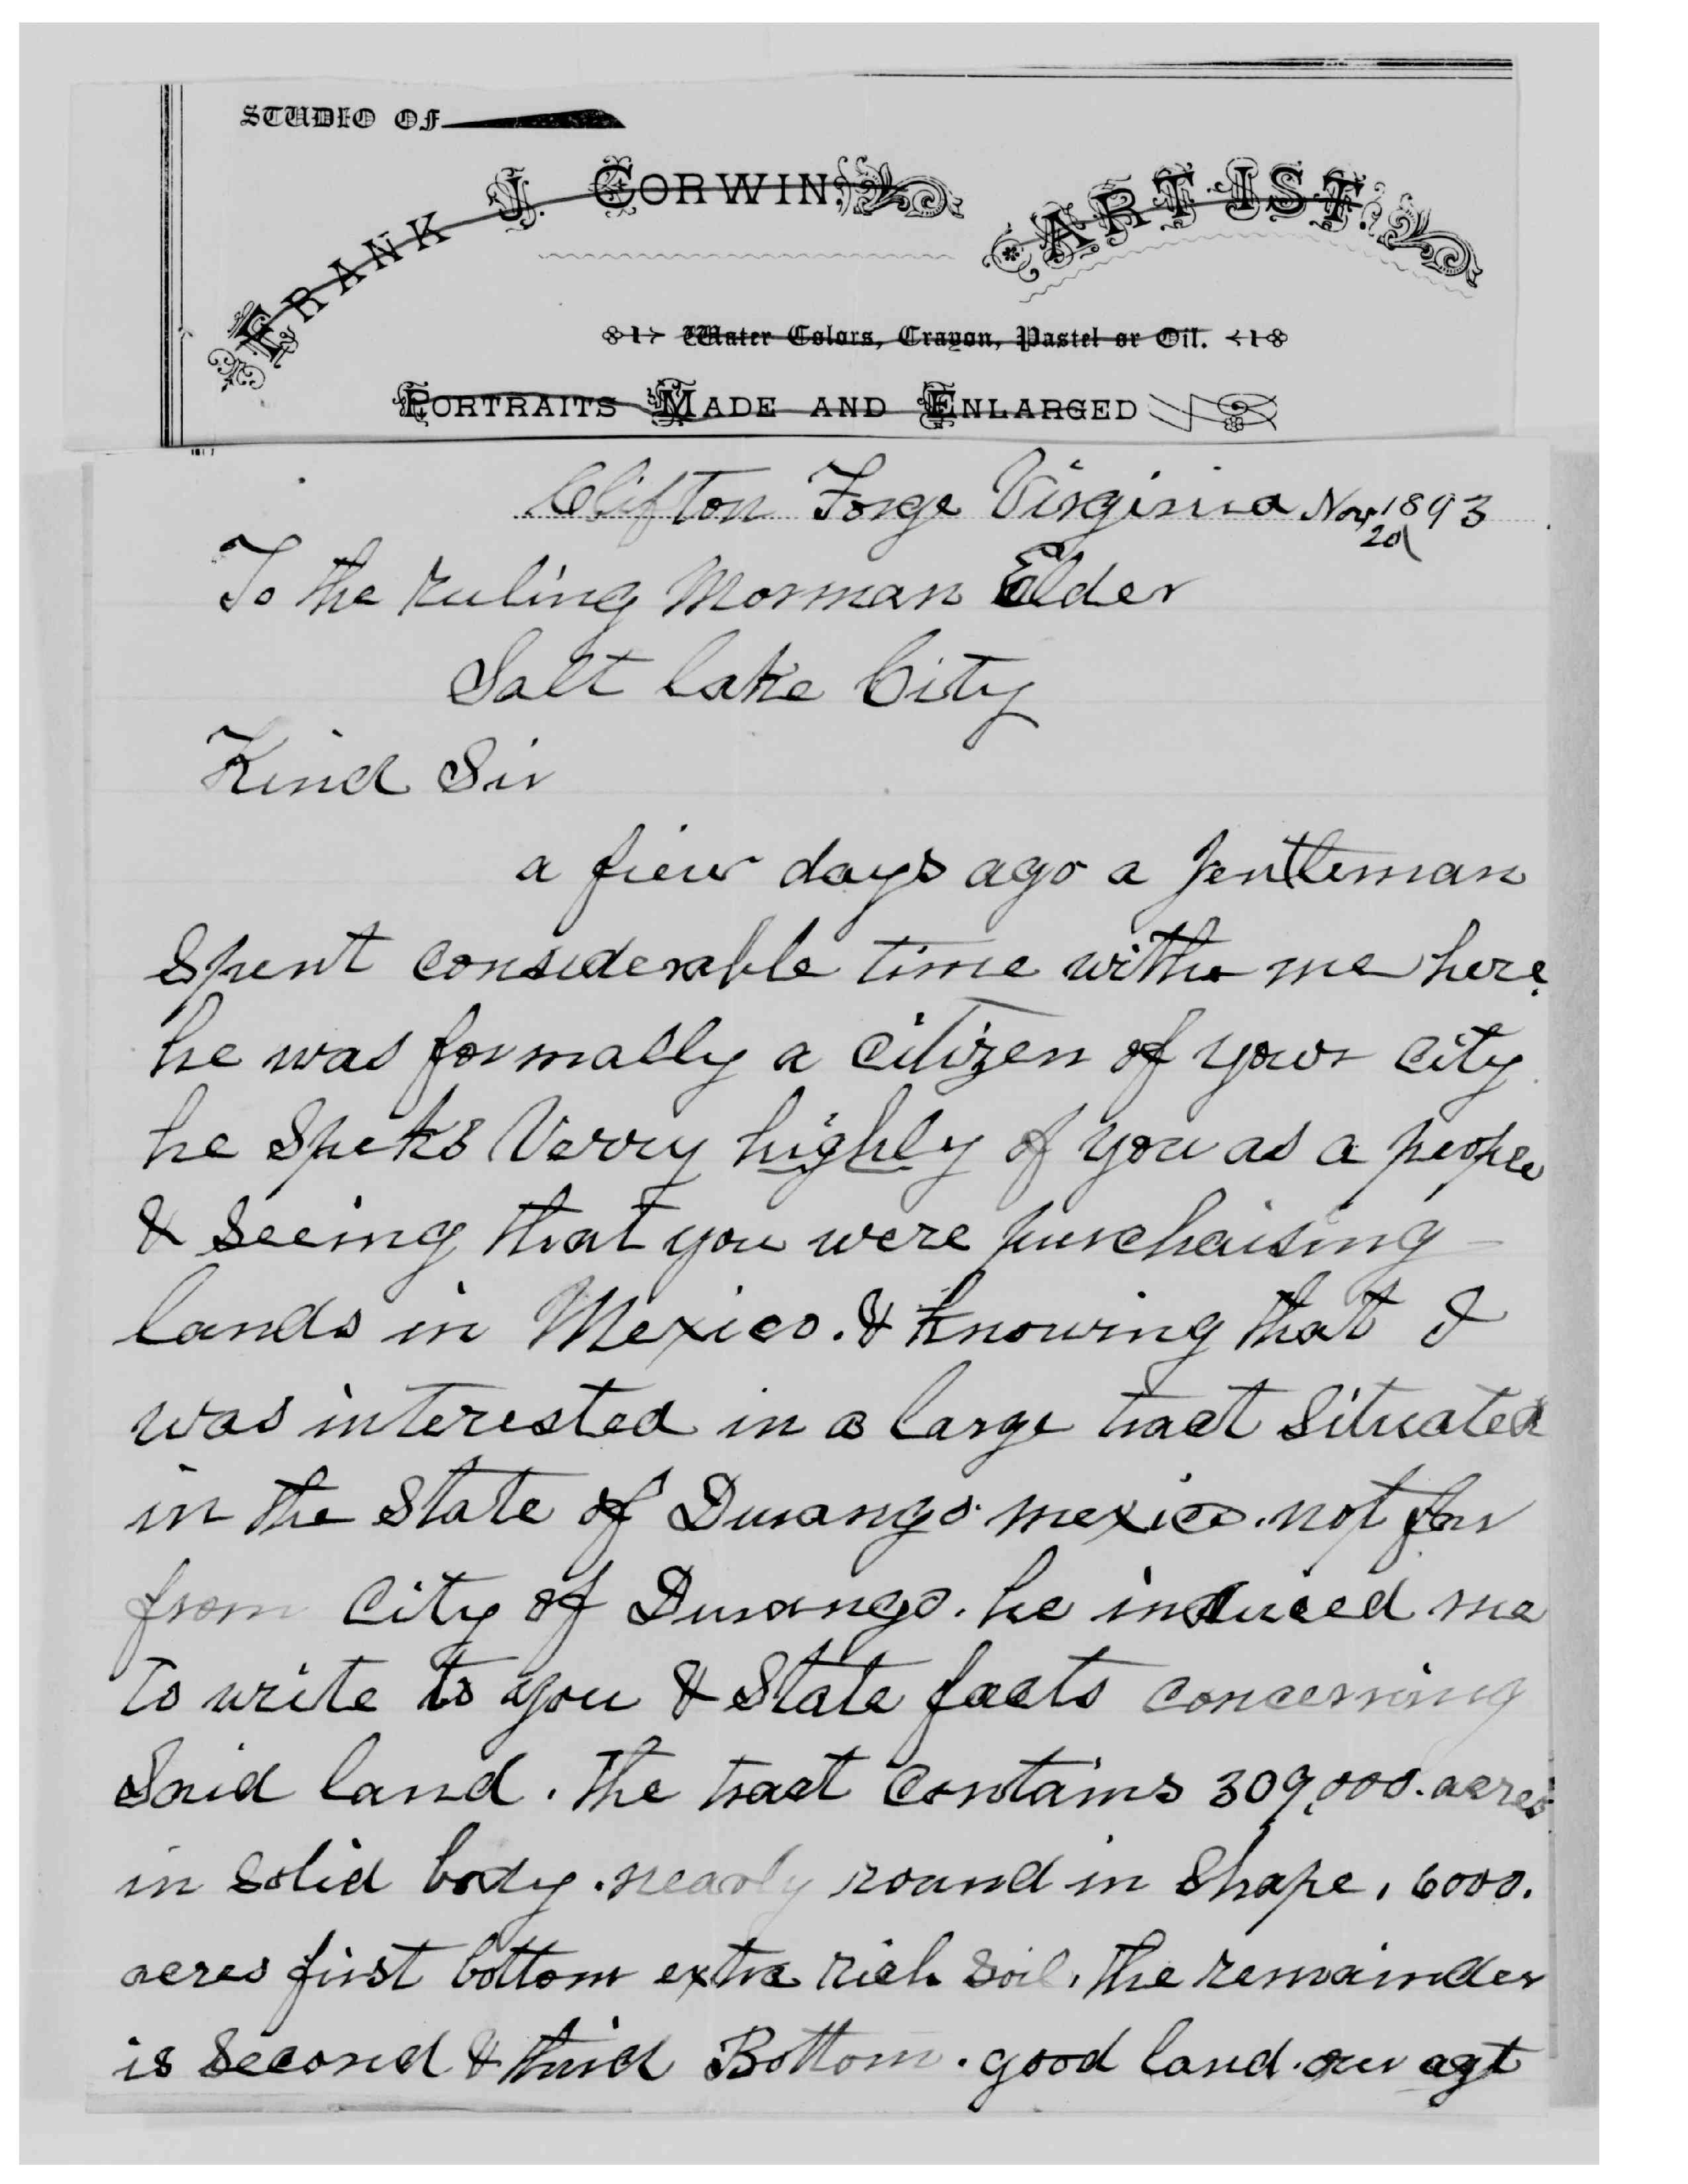 STUDIO OF
FRANK J. CORWIN, ARTIST,
Water Colors, Crayon, Pastel or Oil.
PORTRAITS MADE AND ENLARGED
Clifton Forge Virginia Nov 1893
20
To the ruling Morman Elder
Salt Lake City
Kind Sir
a fiew days ago a Jentleman
Spent considerable time with me here
he was formally a Citizen of your City
he Speks Verry highly of you as a people
& Seeing that you were purchaising
lands in Mexico. & Knowing that I
was interested in a large tract Situated
in the State of Durango mexico. not far
from City of Durango. he induced me
to write to you & State facts concerning
Said land. The tract Contains 309,000. acres
in Solid body. nearly round in Shape. 6000.
acres first bottom extra rich Soil. The remainder
is Second & third Bottom. good land. our agt